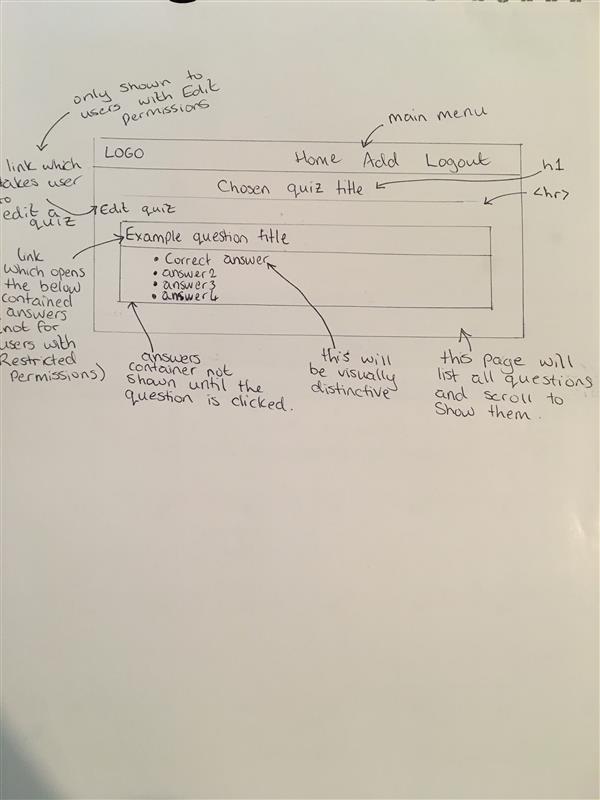 only shown to
users with Edit
permissions
main menu
link which
takes user
to
edit a
quiz
LOGO
Home Add Logout
h1
Chosen quiz title
<hr>
Edit quiz
Example question title
• Correct answer
• answer2
• answer3
• answer4
link
which opens
the below
contained
answers
not for
users with
Restricted
permissions)
answers
container not
shown until the
question is clicked.
this will
be visually
distinctive
this page will
list all questions
and scroll to
show them.